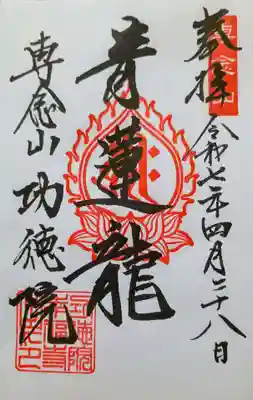 奉拝 令和七年四月二十八日
青蓮龍
専念山 功徳院